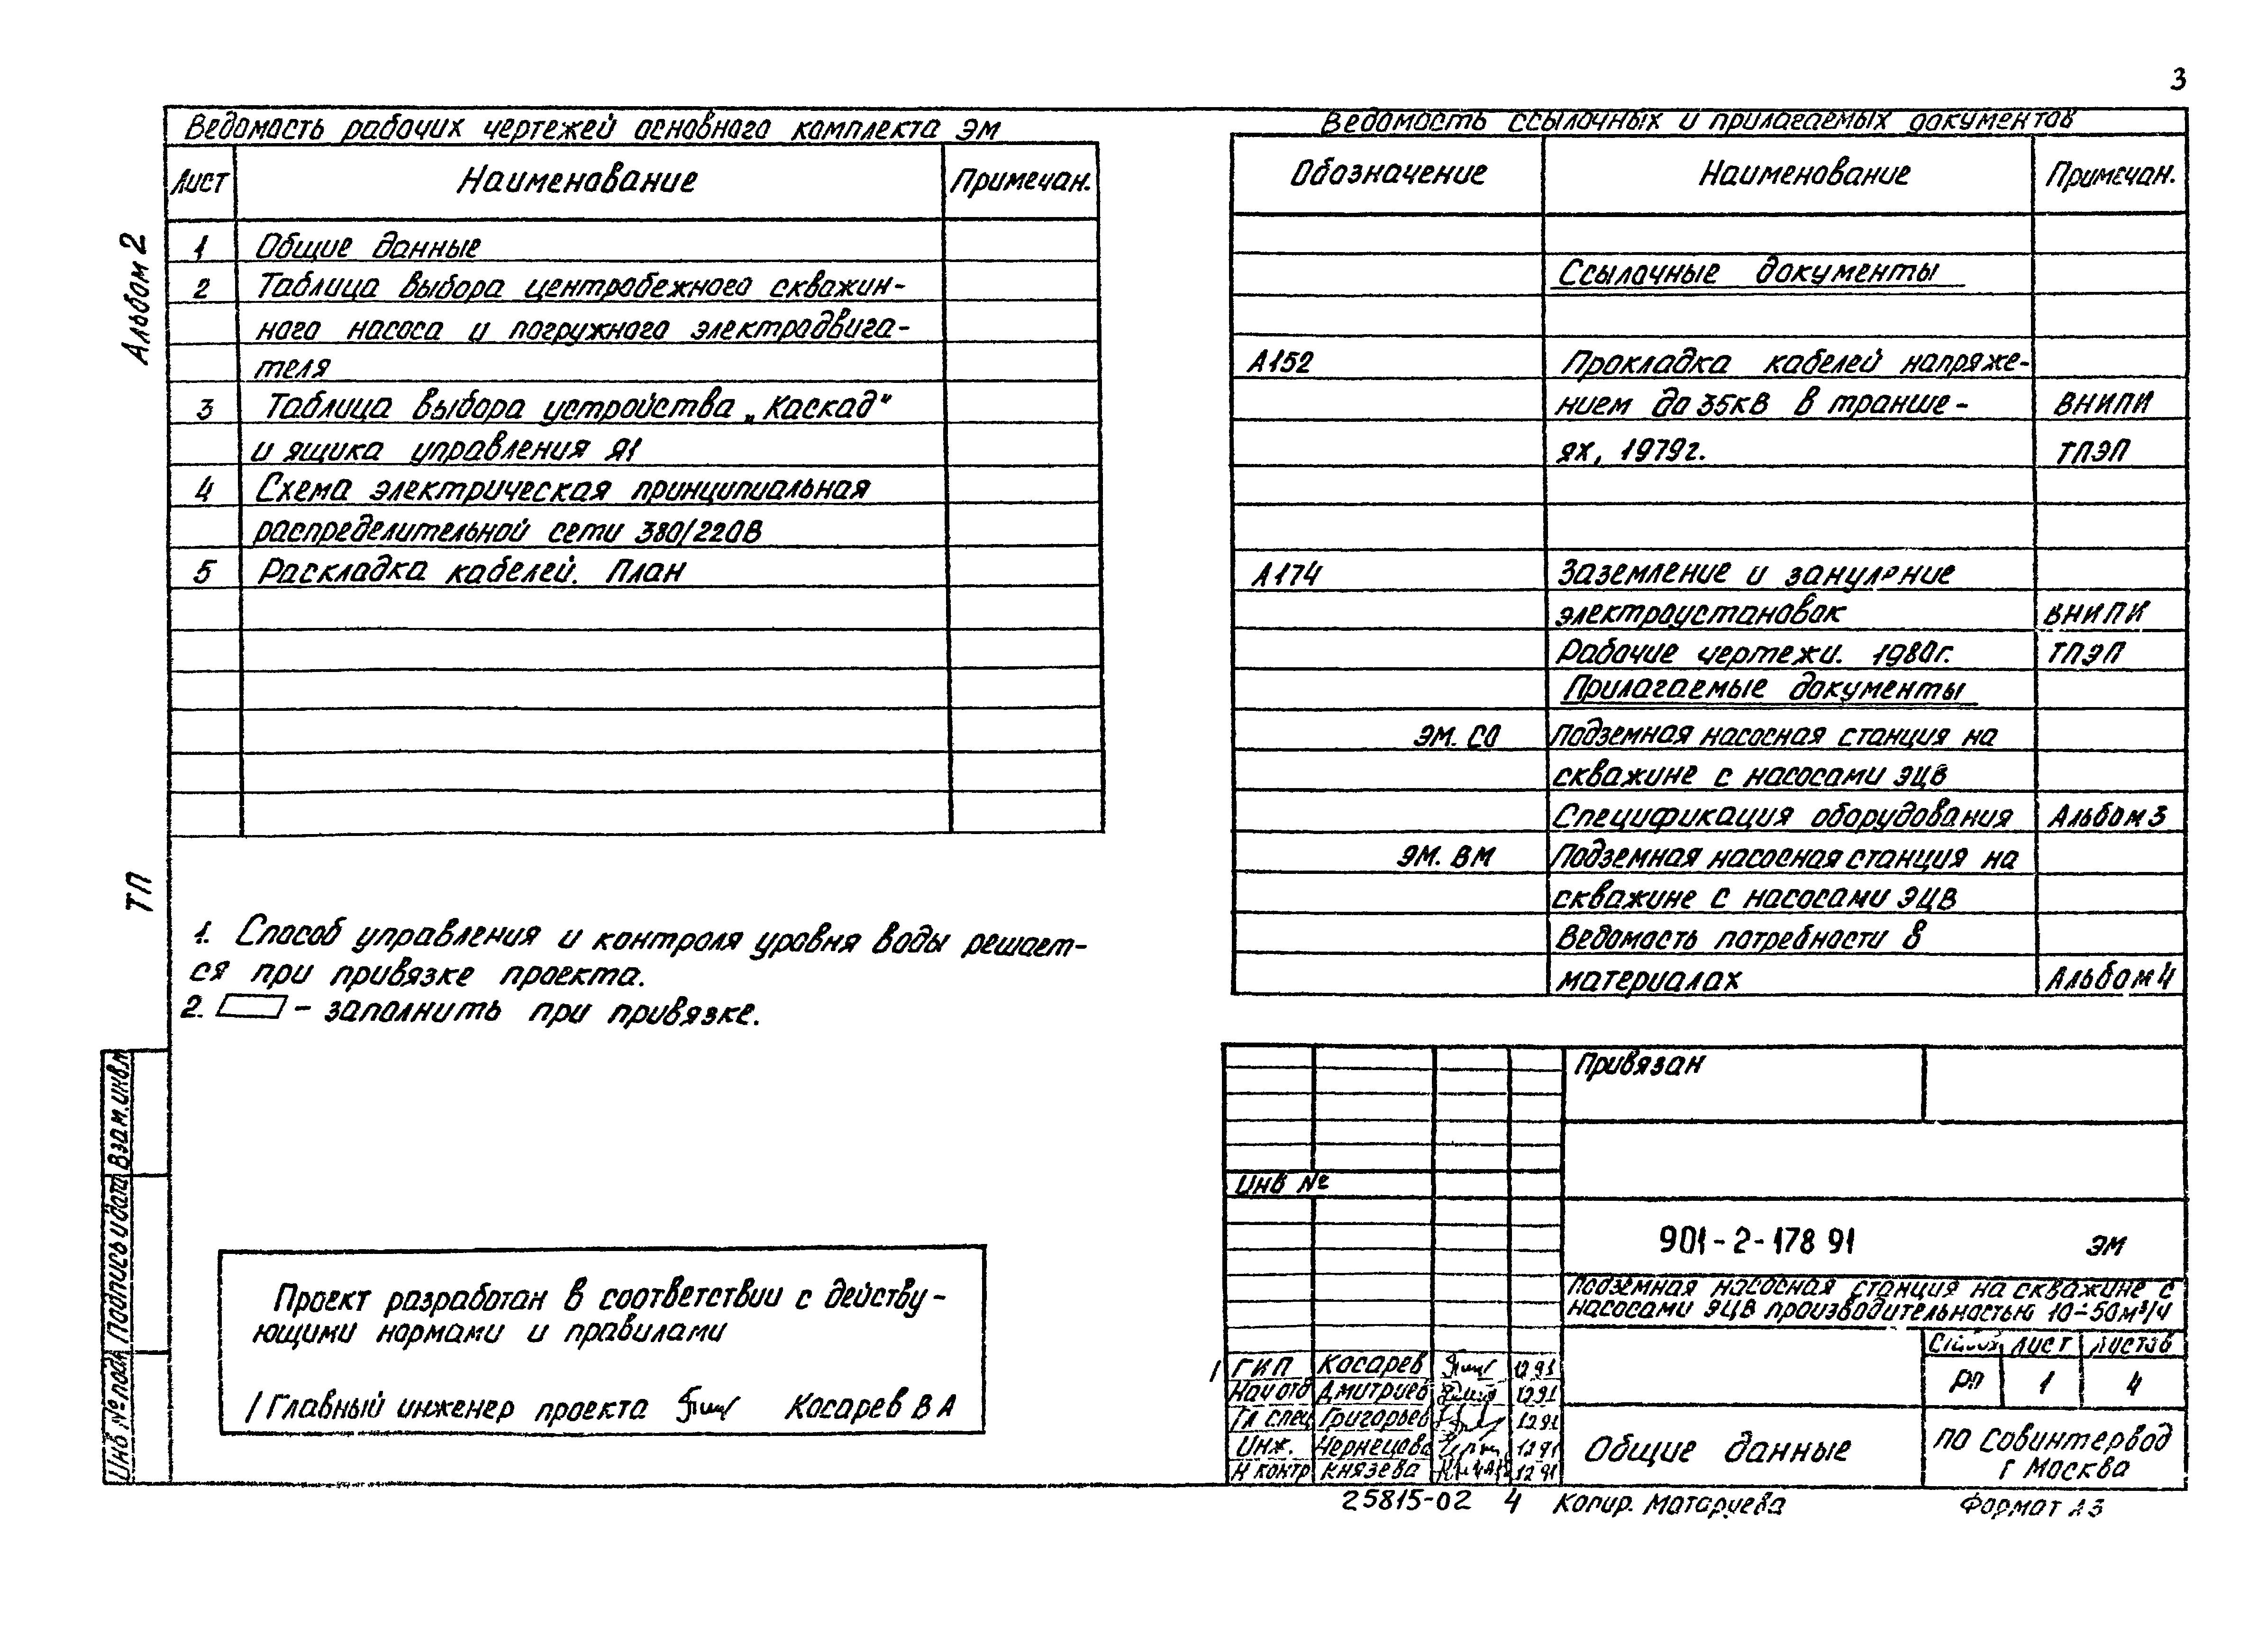 3
Альбом 2
ТП
Ведомость рабочих чертежей основного комплекта ЭМ
Лист Наименование Примечан.
1 Общие данные
2 Таблица выбора центробежного скважин-
ного насоса и погружного электродвига-
теля
3 Таблица выбора устройства „Каскад"
и ящика управления Я1
4 Схема электрическая принципиальная
распределительной сети 380/220В
5 Раскладка кабелей. План
1. Способ управления и контроля уровня воды решает-
ся при привязке проекта.
2. – заполнить при привязке.
Проект разработан в соответствии с действу-
ющими нормами и правилами
Главный инженер проекта Косарев В А
Ведомость ссылочных и прилагаемых документов
Обозначение Наименование Примечан.
Ссылочные документы
А152 Прокладка кабелей напряже-
нием до 35кВ в транше- ВНИПИ
ях, 1979г. ТПЭП
А174 Заземление и зануление
электроустановок ВНИПИ
Рабочие чертежи. 1980г. ТПЭП
Прилагаемые документы
ЭМ. СО Подземная насосная станция на
скважине с насосами ЭЦВ
Спецификация оборудования Альбом 3
ЭМ. ВМ Подземная насосная станция на
скважине с насосами ЭЦВ
Ведомость потребности в
материалах Альбом 4
Привязан
Инв №
901-2-178 91 ЭМ
Подземная насосная станция на скважине с
насосами ЭЦВ производительностью 10÷50м³/ч
Стадия Лист Листов
РП 1 4
ГИП Косарев 12 91
Нач отд Дмитриев 12 91
Гл спец Григорьев 12 91
Инж. Чернецова 12 91
Н контр Князева 12 91
Общие данные
ПО Совинтервод
г Москва
Взам. инв. №
Подпись и дата
Инв № подл
25815-02 4 Копир. Формат А3